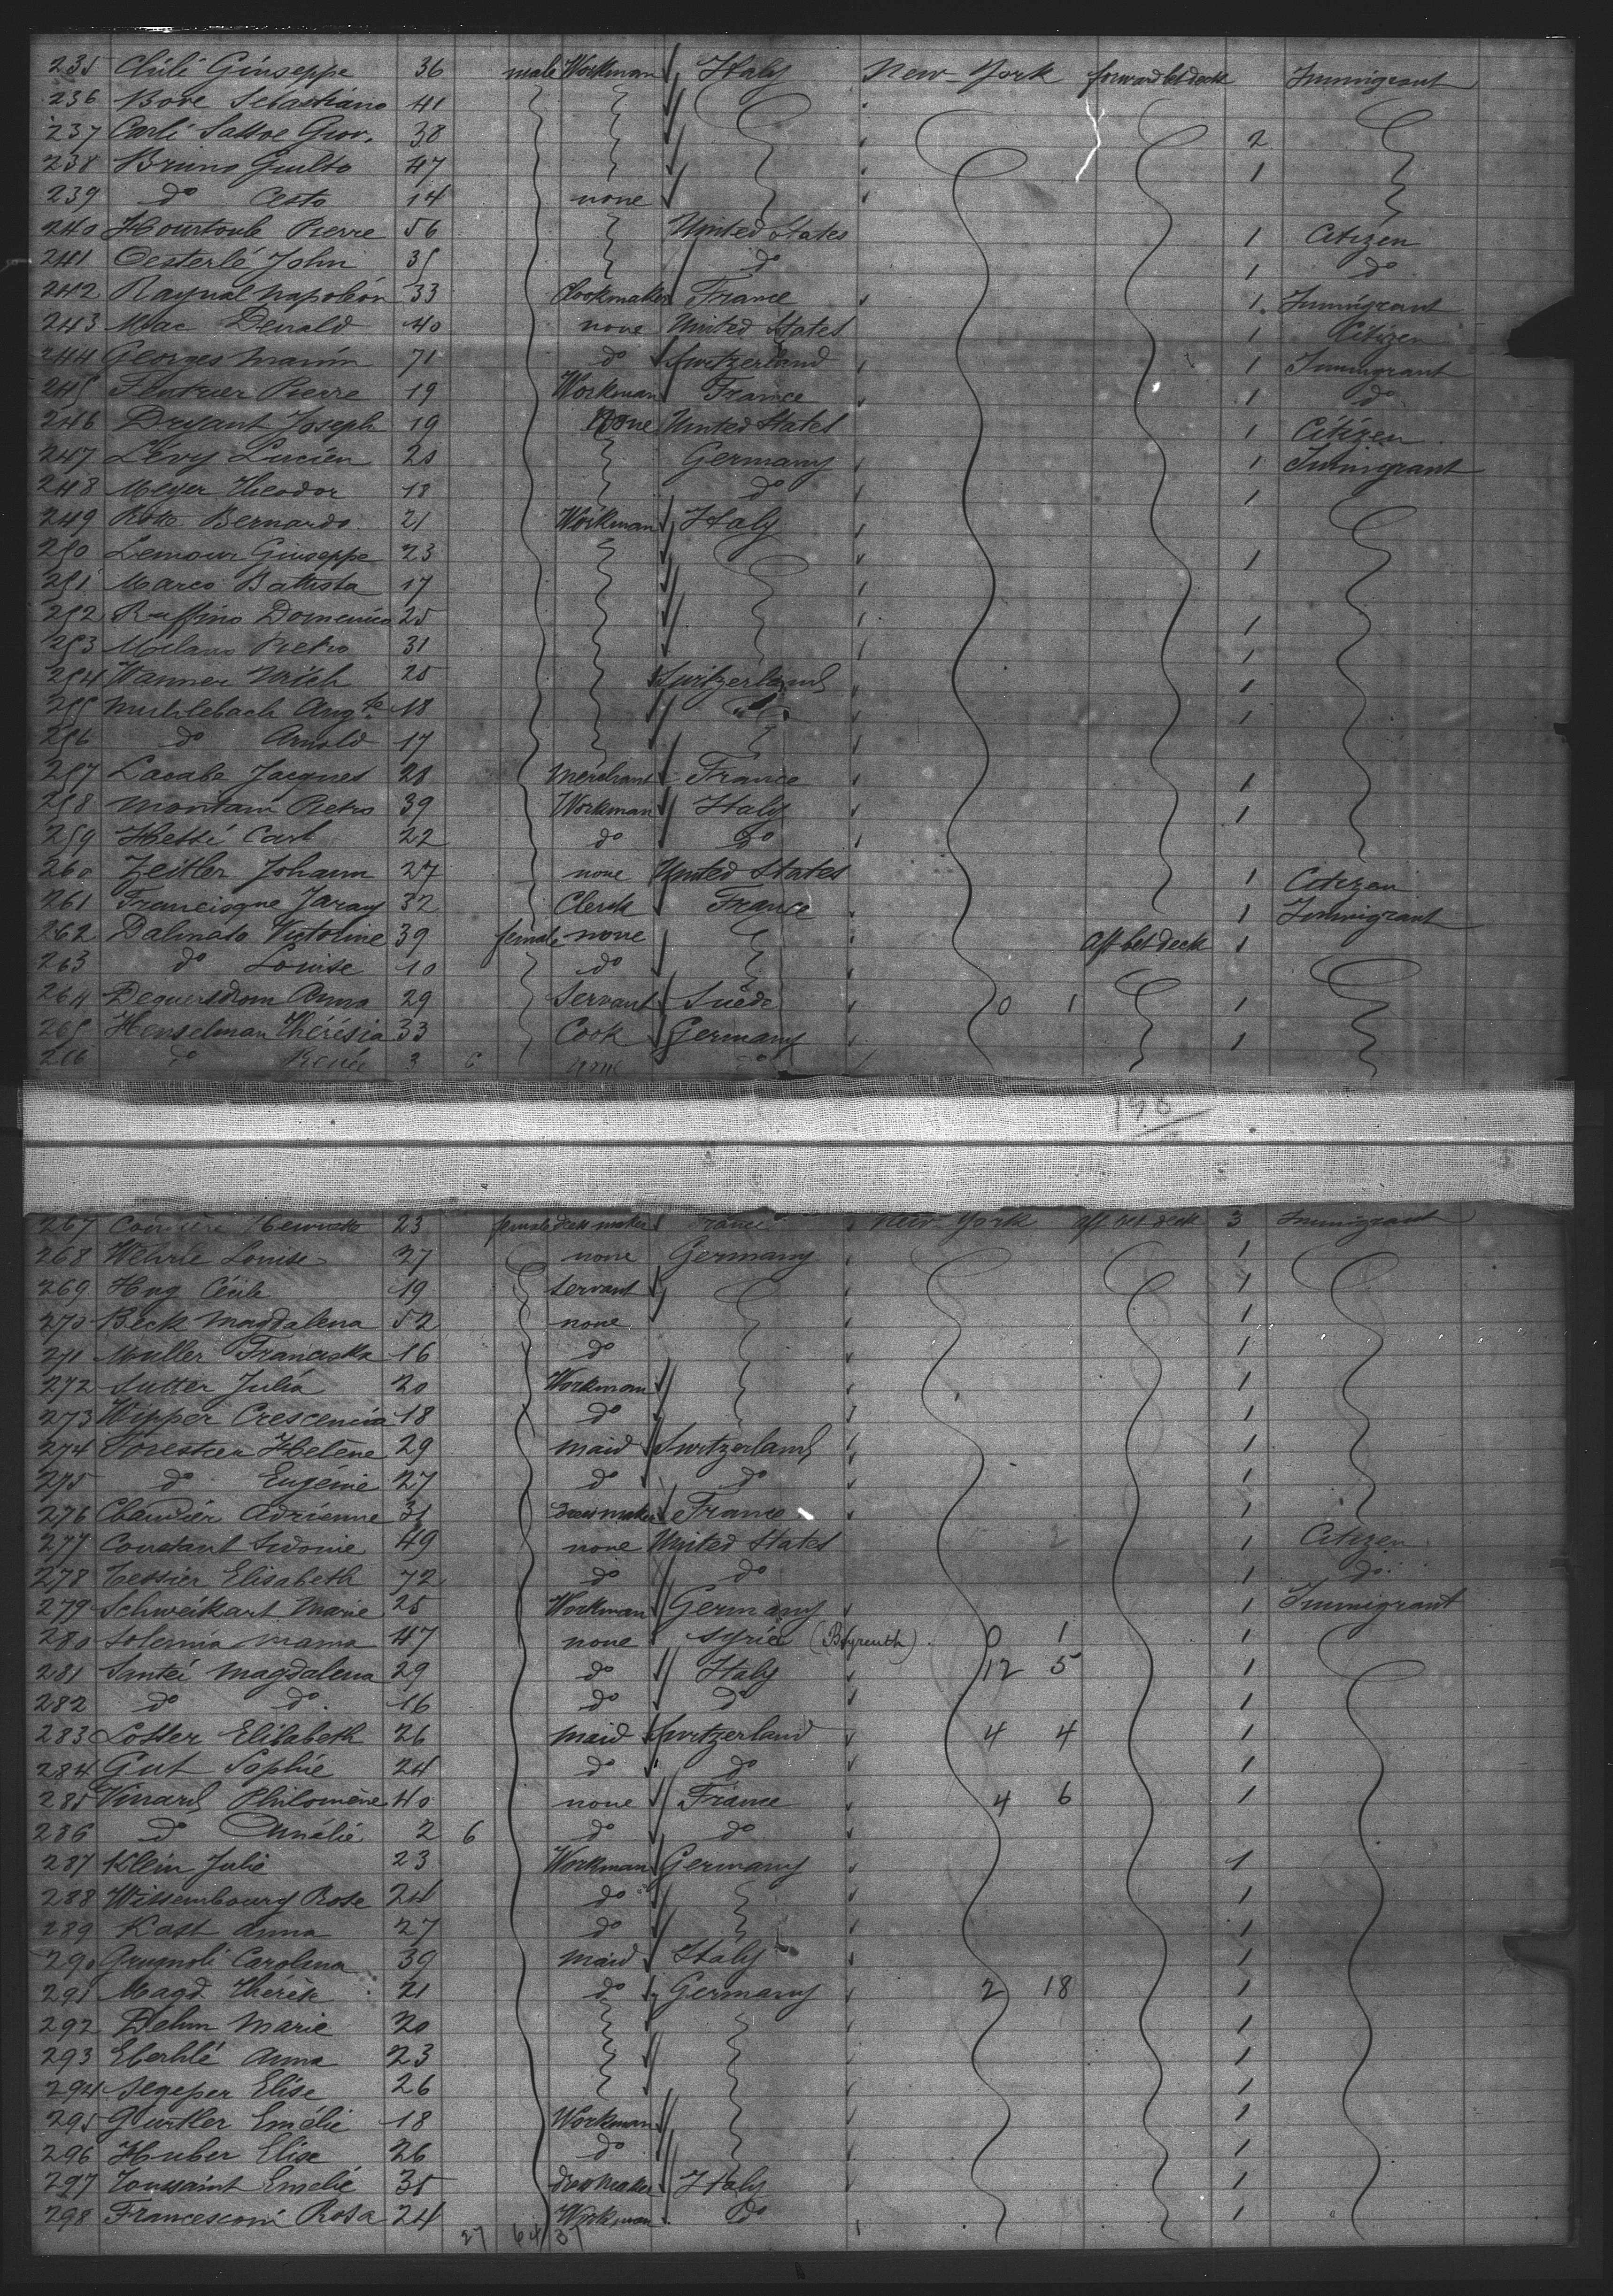 235 Chili Giuseppe 36 male Workman Italy New-York forward bet deck Immigrant
236 Bove Sebastiano 41
237 Carli Sassoe Giov. 38 2
238 Bruno Guilto 47 1
239 do Cesto 14 none
240 Hourtoule Pierre 56 United States 1 Citizen
241 Oesterlé John 35 do 1 do
242 Raynal Napoléon 33 Clookmaker France 1 Immigrant
243 Mac Denald 40 none United States 1 Citizen
244 Georges Marim 71 do Switzerland 1 Immigrant
245 Pierre 19 Workman France 1 do
246 Dryant Joseph 19 None United States 1 Citizen
247 Lévy Lucien 20 Germany 1 Immigrant
248 Meyer Theodor 18 do 1
249 Rotte Bernardo 21 Workman Italy
250 Lemour Giuseppe 23 1
251 Marco Battista 17
252 Ruffino Domenico 25 1
253 Milano Pietro 31 1
254 Wanner Ulrich 25 Switzerland 1
255 Muhlebach Aug.te 18 1
256 do Arnold 17
257 Lacabe Jacques 28 Merchant France 1
258 Montani Pietro 39 Workman Italy 1
259 Hessi Carl 22 do do
260 Zeitler Johann 27 none United States 1 Citizen
261 Francisque Jaray 32 Clerck France 1 Immigrant
262 Dalmato Victorine 39 female none Aft bet deck 1
263 do Louise 10 do
264 Dequersdrom Anna 29 Servant Suède 0 1 1
265 Henselman Thérésia 33 Cook Germany 1
266 do Renée 3 6 none do
198
267 23 female dress maker France New-York aft bet deck 3 Immigrant
268 Wehrle Louise 27 none Germany 1
269 Hug Cécile 19 Servant 1
270 Beck Magdalena 52 none 1
271 Muller Franciska 16 do 1
272 Sutter Julia 20 Workman 1
273 Wipper Crescencia 18 do 1
274 Forestier Helène 29 maid Switzerland 1
275 do Eugénie 27 do do 1
276 Claudier Adrienne 31 dressmaker France 1
277 Constant Sidonie 49 none United States 2 1 Citizen
278 Tessier Elisabeth 72 do do 1 do
279 Schweikart Marie 25 Workman Germany 1 Immigrant
280 Solemia Mama 47 none Syrie (Beyreuth) 0 1 1
281 Santei Magdalena 29 do Italy 12 5 1
282 do do 16 do do 1
283 Losser Elisabeth 26 maid Switzerland 4 4 1
284 Gut Sophie 24 do do 1
285 Vinard Philomène 40 none France 4 6 1
286 do Amélie 2 6 do do
287 Klein Julie 23 Workman Germany 1
288 Wissembourg Rose 24 do 1
289 Kast Anna 27 do 1
290 Grugnoli Carolina 39 maid Italy 1
291 Magd Thérèse 21 do Germany 2 18 1
292 Dehm Marie 20 1
293 Eberhlé Anna 23 1
294 Segeper Elise 26 1
295 Gurtler Emélie 18 Workman 1
296 Huber Elise 26 do 1
297 Toussaint Emelie 35 dressmaker Italy 1
298 Francesconi Rosa 24 Workman do 1
27 64 37